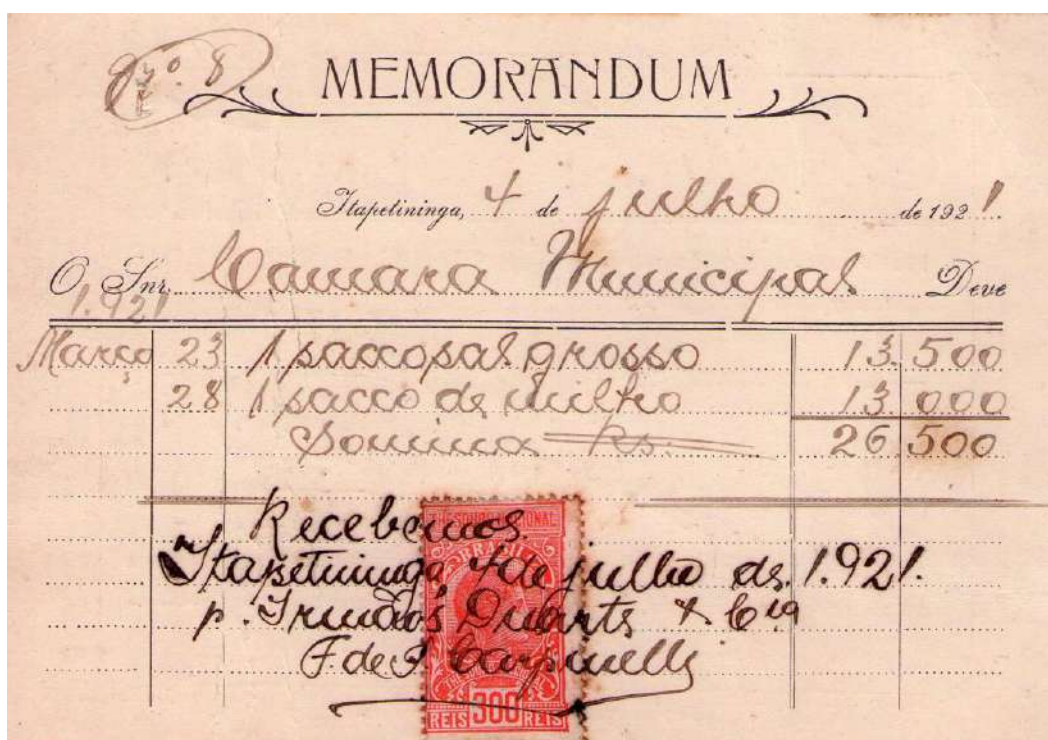 Nº 8
MEMORANDUM
Itapetininga, 4 de julho de 1921
O Snr. Camara Municipal Deve
1.921
Março 23 1 sacco sal grosso 13.500
28 1 sacco de milho 13 000
Somma Rs. 26.500
Recebemos.
Itapetininga 4 de julho de 1.921.
p. Irmãos Duarte & Cia
F. de P. Carpinelli
THESOURO NACIONAL
BRAZIL
REIS 300 REIS